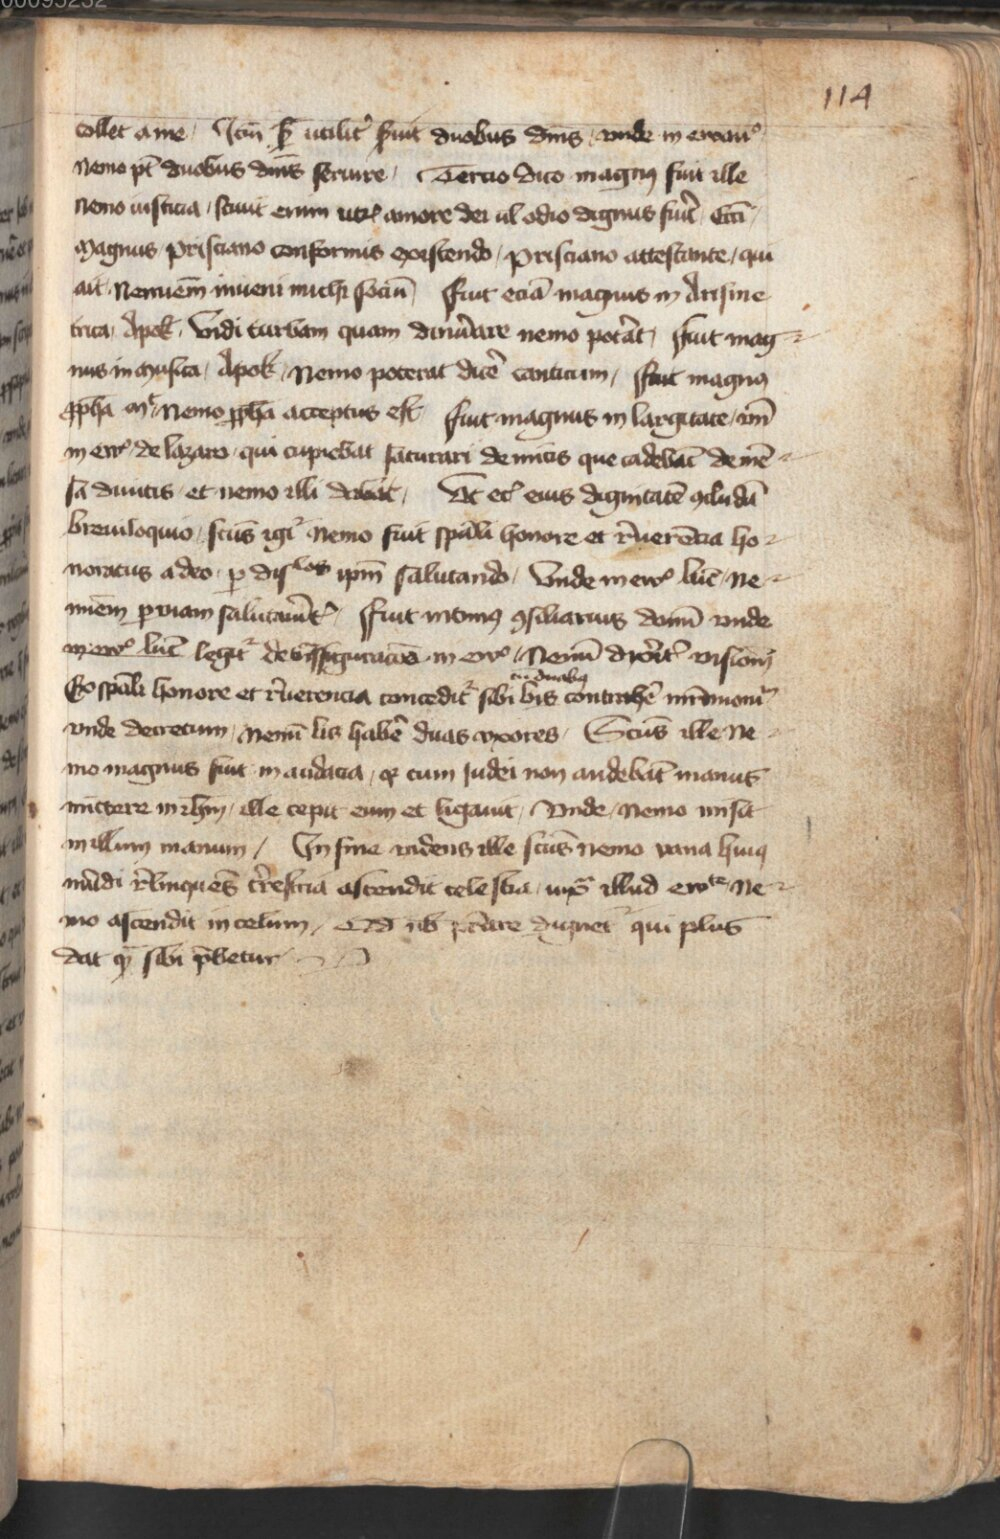 00095232
114
tollet a me / Itm̄ utilit᷑ duobus dn̄is vnde in ewan᷑
Nemo pt̄ duobus dn̄is seruire / Tercio dico magnꝰ fuit ille
nemo iusticia / sciuit enim utrꝫ amore dei ul odio dignus fuit᷑
Magnus prisciano conformis existendo / prisciano attestante / qui
ait / Neminē inueni michi sociū / ffuit eciā magnus in Arisme
trica / Apok̄ / Vidi turbam quam dinūare nemo potāt / ffuit mag
nus in musica / Apok̄ / Nemo poterat dicē canticum / ffuit magnꝰ
ꝓpha nemo ꝓpha acceptus est ffuit magnus in largitate / vn̄
in ew᷑ de lazaro / qui cupiebat saturari de micis que cadebāt de mē
sa diuitis / et nemo illi dabat / Ut eciā eius dignitatē ꝯcludā
breuiloquio / scūs igit᷑ nemo fuit sp̄ali honore et r̄uerēcia ho
noratus a deo ꝑ dis᷑los ip̄m salutando / Vnde in ew᷑ luc̄ / Ne
minem ꝑ viam salutauīt᷑ / ffuit intimꝰ ꝯsiliarius domī vnde
in ew᷑ luc̄ legit᷑ de tn̄sfiguracōe in ew᷑ / Nemī dixerit᷑ visionē
cū duabꝰ
Ex sp̄ali honore et r̄uerencia concedit᷑ sibi bis contrahē mr̄imoniū
vnde decretum / nemī lic̄ habē duas vxores / Scūs ille ne
mo magnus fuit in audacia / qꝛ cum Iudei non audebāt manus
mittere in ihm̄ / ille cepit eum et ligauit / Vnde / Nemo misit
in illum manum / In fine videns ille scūs nemo vana huiꝰ
mūdi r̄linquēs tr̄estria ascendit celestia / iuxᵃ illud ew᷑ / Ne
mo ascendit in celum / Qd nob̄ p̄stare dignet᷑ qui plus
dat qᵃ sibi p̄betur